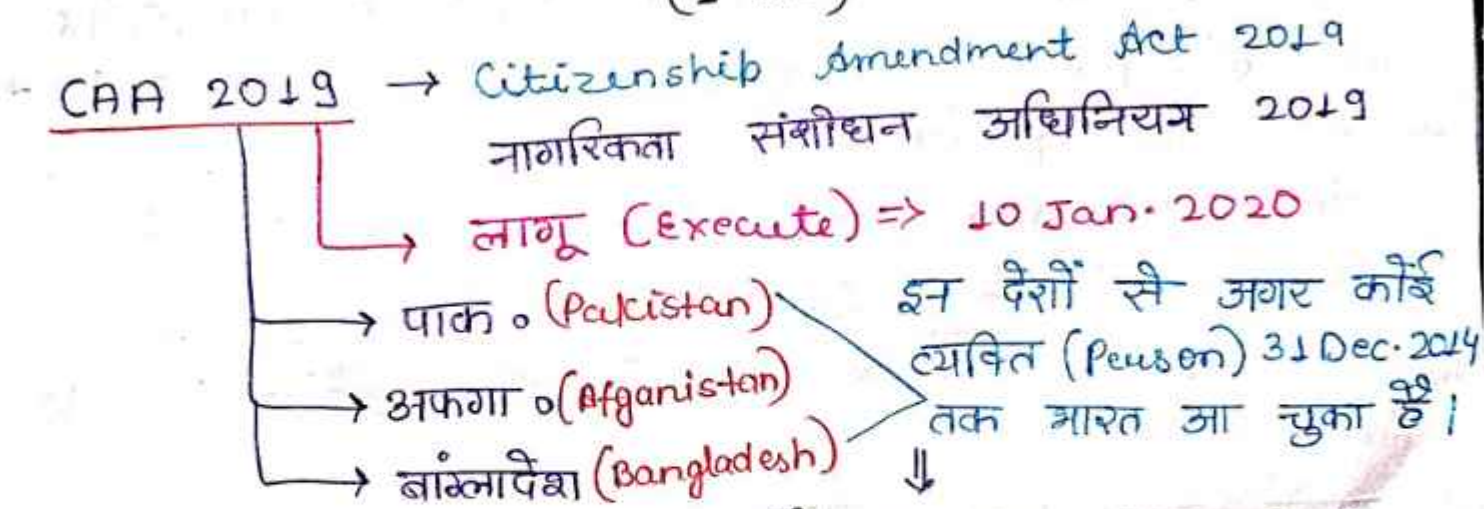 CAA 2019 → Citizenship Amendment Act 2019
नागरिकता संशोधन अधिनियम 2019
→ लागू (Execute) => 10 Jan. 2020
→ पाक ० (Pakistan)
→ अफगा ० (Afganistan)
→ बांग्लादेश (Bangladesh)
इन देशों से अगर कोई
व्यक्ति (Person) 31 Dec. 2014
तक भारत आ चुका है।
⇓